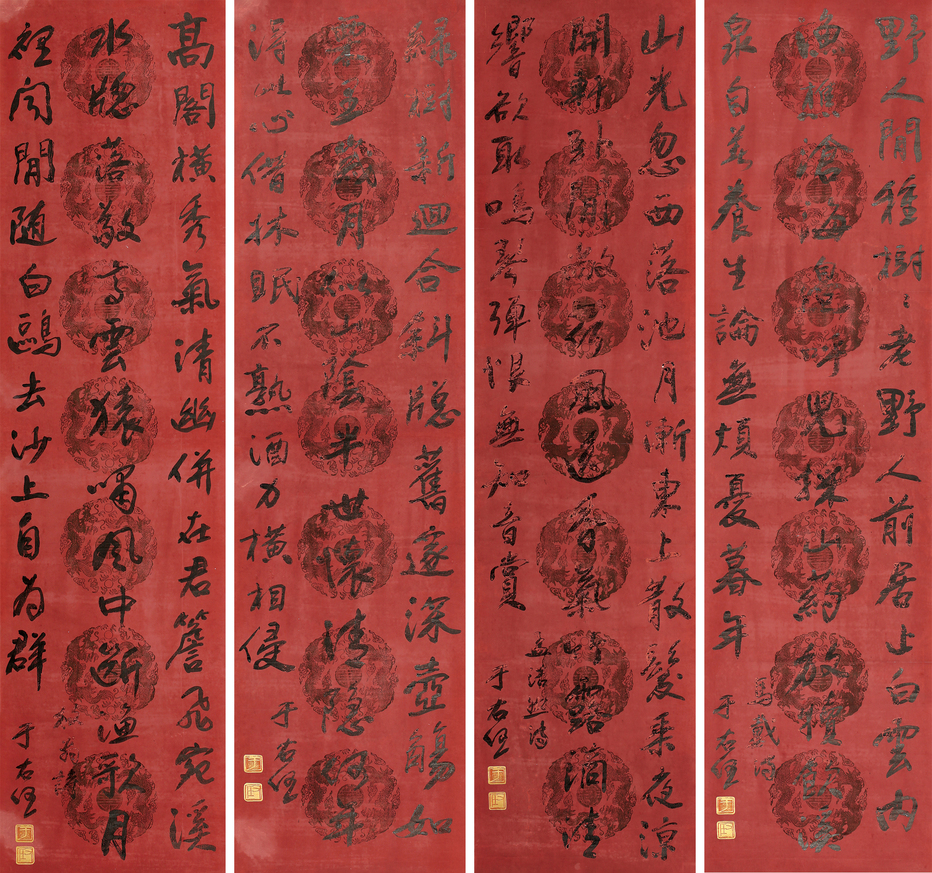 野人閒種樹〻老野人前居止白雲內
漁樵滄海邊呼兒採山藥放犢飲溪
泉自著養生論無煩憂暮年
馬戴詩
于右任
山光忽西落池月漸東上散髮乘夜涼
開軒臥閒敞荷風送香氣竹露滴清
響欲取鳴琴彈恨無知音賞
孟浩然詩
于右任
綠樹新迴合斜牕舊邃深壺觴如
栗里歲月似山陰半世懷清隱何年
得此心借牀眠不熟酒力橫相侵
于右任
高閣橫秀氣清幽併在君簷飛宛溪
水牕落敬亭雲猿嘯風中斷漁歌月
裡聞閒隨白鷗去沙上自為群
于右任